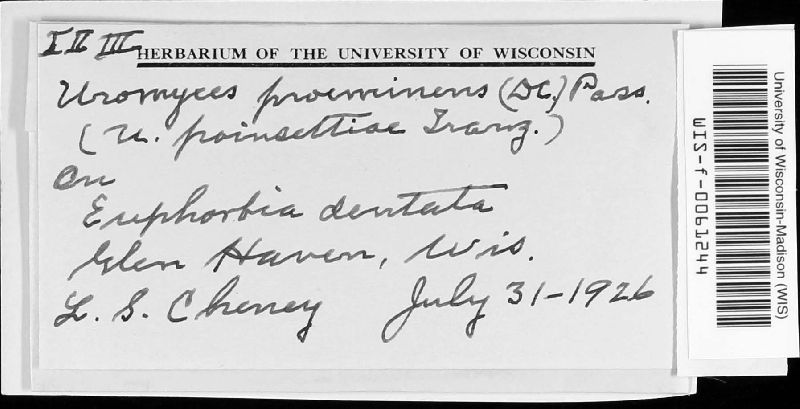 I II III
HERBARIUM OF THE UNIVERSITY OF WISCONSIN
Uromyces proeminens (DC.) Pass.
(U. poinsettiae Tranz.)
on
Euphorbia dentata
Glen Haven, Wis.
L. S. Cheney July 31-1926
University of Wisconsin-Madison (WIS)
WIS-f-0061244